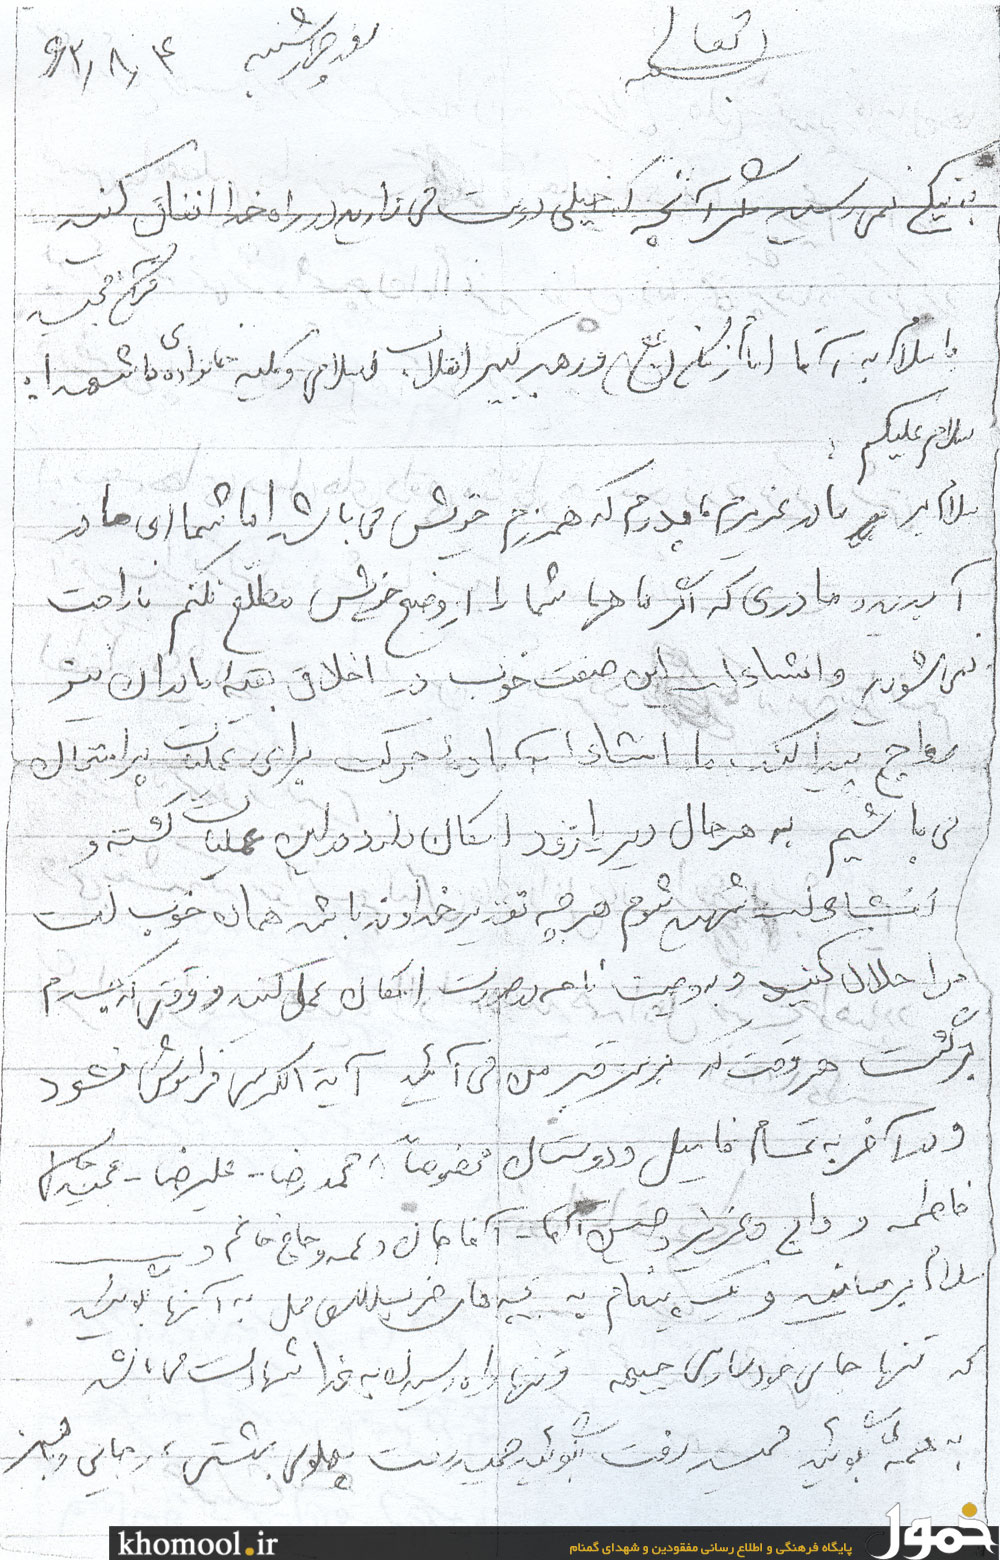 بسمه تعالی
روز چهارشنبه ۶۲/۸/۴
به نیکی نمی‌رسید مگر آنچه که خیلی دوست می‌دارید در راه خدا انفاق کنید
قرآن مجید
با سلام به آقا امام زمان (عج) و رهبر کبیر انقلاب اسلامی و کلیه خانواده‌ی شهدا:
سلام علیکم:
سلام بر مادر عزیزم، پدرم که همرزم خویش می‌باشد اما شما ای مادر
آمدید و مادری که اگر ماهها شما را از وضع خویش مطلع نکنم ناراحت
نمی‌شوید و انشاءا... این صفت خوب در اخلاق بقیه مادران نیز
رواج پیدا کند ما انشاءا... آماده حرکت برای عملیات پیرامتحان
می‌باشیم به هر حال دیر یا زود امکان دارد در این عملیات کشته و
شهید شوم هر چه تقدیر خداوند باشد همان خوب است
مرا حلال کنید و به وصیت نامه در صورت امکان عمل کنند و وقتی که جسدم
برگشت هر وقت که بر سر قبر من می‌آئید آیة الکرسی فراموش نشود
و در آخر به تمام فامیل و دوستان مخصوصاً محمدرضا - علیرضا -
فاطمه و و عزیز و حسین آقا - آقا جان و عمه و حاج خانم و
سلام برسانید و یک پیغام به بچه‌های محل به آنها بگویید
که تنها جای خودسازی جبهه و تنها راه رسیدن به خدا شهادت می‌باشد
به همه بگوئید حمید رفت بگوئید حمید رفت پهلوی بهشتی، رجایی و
خمول
پایگاه فرهنگی و اطلاع رسانی مفقودین و شهدای گمنام
khomool.ir